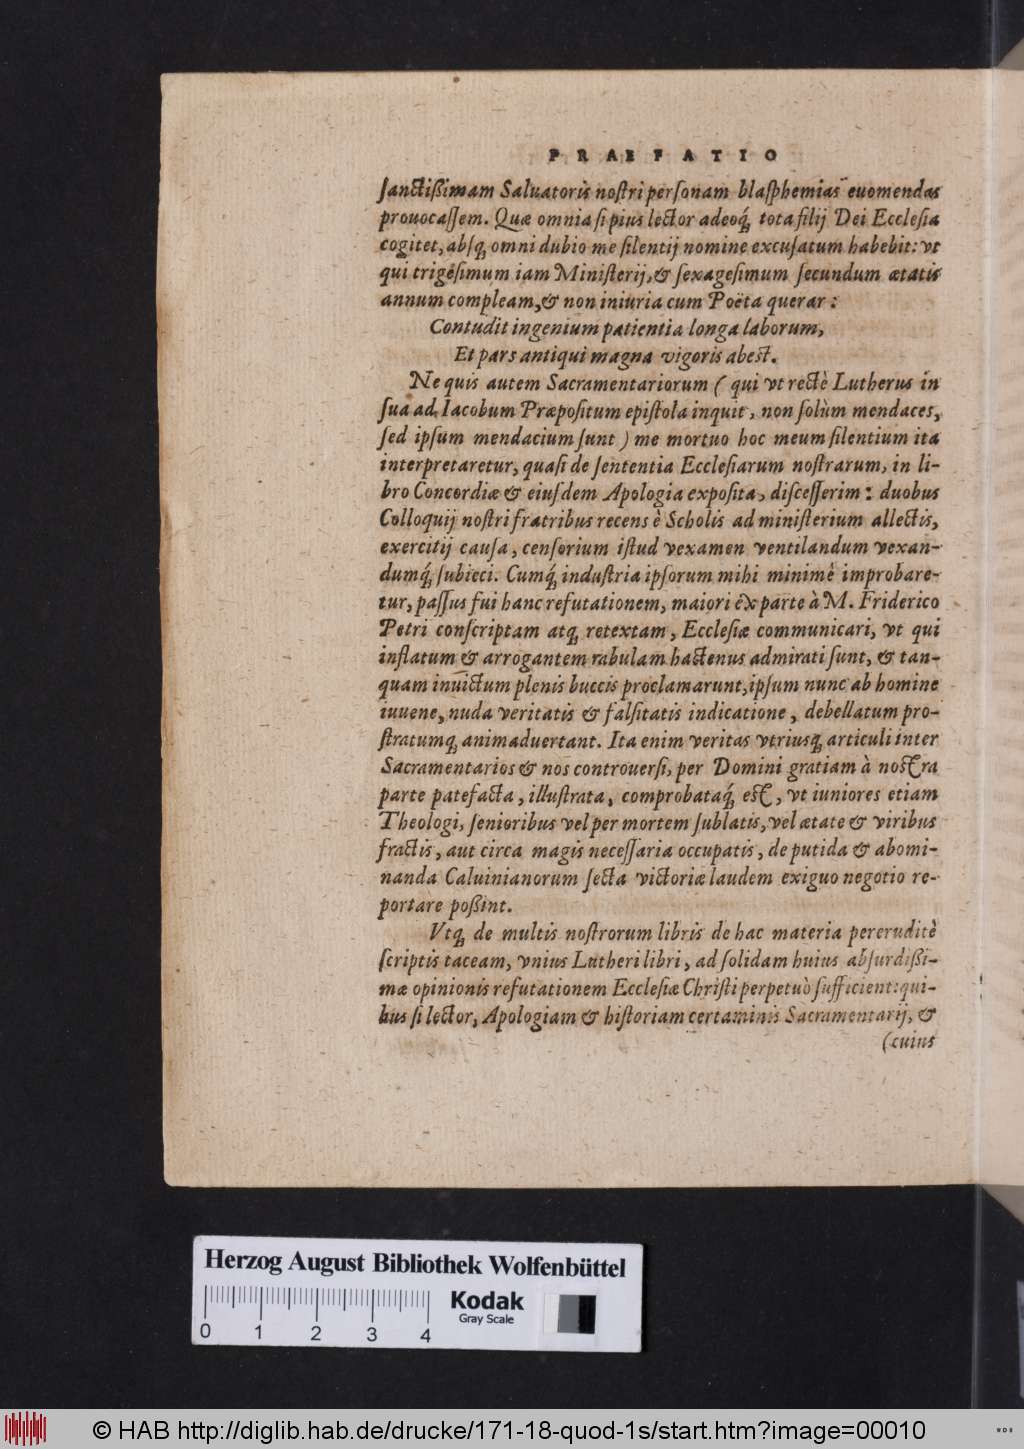 PRAEFATIO
ſanctißimam Saluatoris noſtri perſonam blaſphemias euomendas
prouocaſſem. Quæ omnia ſi pius lector adeoq́ꝫ tota filij Dei Ecclesia
cogitet, abſqꝫ omni dubio me ſilentij nomine excuſatum habebit: vt
qui trigesimum iam Miniſterij, & ſexageſimum ſecundum ætatis
annum compleam, & non iniuria cum Poëta querar:
Contudit ingenium patientia longa laborum,
Et pars antiqui magna vigoris abest.
Ne quis autem Sacramentariorum ( qui vt rectè Lutherus in
ſua ad Iacobum Præpoſitum epiſtola inquit, non ſolùm mendaces,
ſed ipſum mendacium ſunt ) me mortuo hoc meum ſilentium ita
interpretaretur, quaſi de ſententia Eccleſiarum noſtrarum, in li-
bro Concordiæ & eiuſdem Apologia expoſita, diſceſſerim: duobus
Colloquij noſtri fratribus recens è Scholis ad miniſterium allectis,
exercitij cauſa, cenſorium iſtud vexamen ventilandum vexan-
dumq́ꝫ ſubieci. Cumq́ꝫ induſtria ipſorum mihi minimè improbare-
tur, paſſus fui hanc refutationem, maiori ex parte à M. Friderico
Petri conſcriptam atqꝫ retextam, Eccleſiæ communicari, vt qui
inflatum & arrogantem rabulam hactenus admirati ſunt, & tan-
quam inuictum plenis buccis proclamarunt, ipſum nunc ab homine
iuuene, nuda veritatis & falſitatis indicatione, debellatum pro-
ſtratumqꝫ animaduertant. Ita enim veritas vtriusqꝫ articuli inter
Sacramentarios & nos controuerſi, per Domini gratiam à noſtra
parte patefacta, illuſtrata, comprobataq́ꝫ est, vt iuniores etiam
Theologi, ſenioribus vel per mortem ſublatis, vel ætate & viribus
fractis, aut circa magis neceſſaria occupatis, de putida & abomi-
nanda Caluinianorum ſecta victoriæ laudem exiguo negotio re-
portare poßint.
Vtqꝫ de multis noſtrorum libris de hac materia pereruditè
ſcriptis taceam, vnius Lutheri libri, ad ſolidam huius abſurdißi-
mæ opinionis refutationem Eccleſiæ Chriſti perpetuò ſufficient: qui-
bus ſi lector, Apologiam & hiſtoriam certaminis Sacramentarij, &
(cuius
Herzog August Bibliothek Wolfenbüttel
Kodak
Gray Scale
0 1 2 3 4
© HAB http://diglib.hab.de/drucke/171-18-quod-1s/start.htm?image=00010